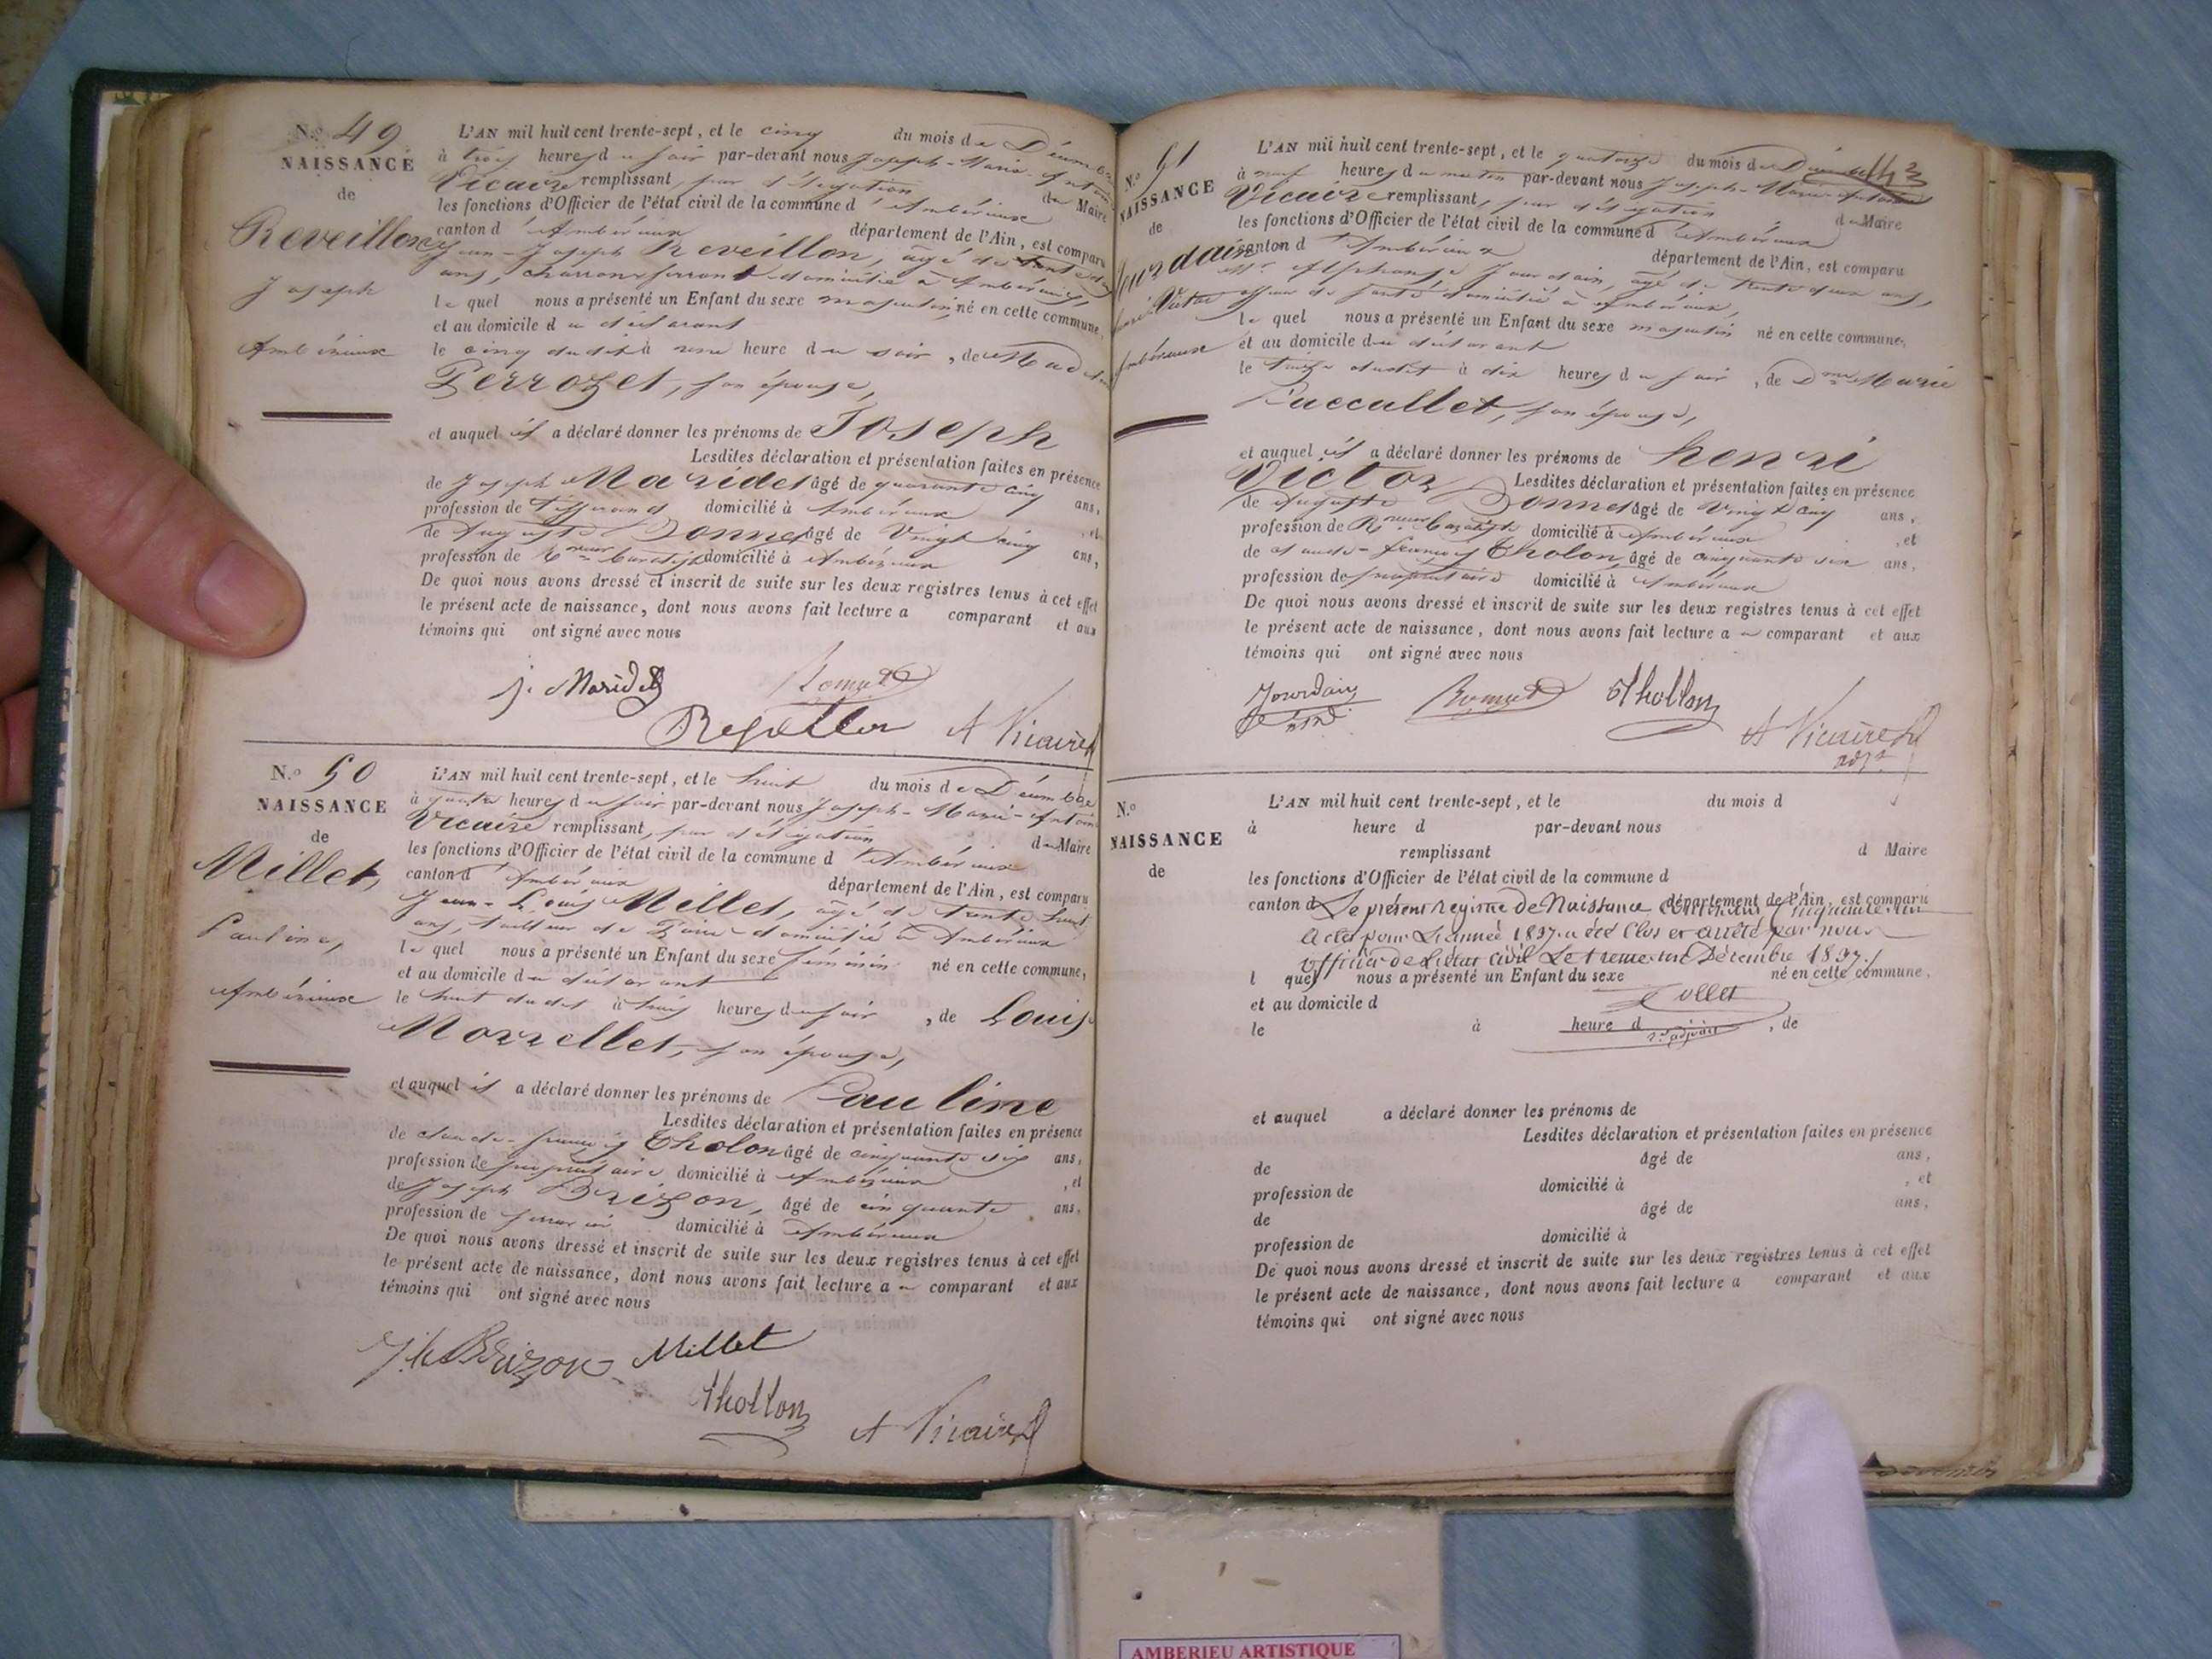 N.º 49
NAISSANCE
de
Reveillon
Joseph
Ambérieux
L'AN mil huit cent trente-sept, et le cinq du mois de Décembre
à trois heures du soir par-devant nous Joseph-Marie-Antoine
Vicaire remplissant, par délégation du Maire
les fonctions d'Officier de l'état civil de la commune d'Ambérieux
canton d'Ambérieux département de l'Ain, est comparu
Jean-Joseph Reveillon, âgé de trente
ans, domicilié à Ambérieux,
lequel nous a présenté un Enfant du sexe masculin, né en cette commune,
et au domicile du déclarant
le cinq dudit à heure du soir, de
Perrozet, son épouse,
et auquel il a déclaré donner les prénoms de Joseph
Lesdites déclaration et présentation faites en présence
de Joseph Maridet âgé de quarante cinq ans,
profession de domicilié à Ambérieux, et
de Auguste Bonnet âgé de Vingt cinq ans,
profession de domicilié à Ambérieux
De quoi nous avons dressé et inscrit de suite sur les deux registres tenus à cet effet
le présent acte de naissance, dont nous avons fait lecture a comparant et aux
témoins qui ont signé avec nous
J. Maridet
Reveillon A Vicaire
N.º 50
NAISSANCE
de
Millet,
Pauline,
Ambérieux
L'AN mil huit cent trente-sept, et le huit du mois de Décembre
à quatre heures du soir par-devant nous Joseph-Marie-Antoine
Vicaire remplissant, par délégation du Maire
les fonctions d'Officier de l'état civil de la commune d'Ambérieux
canton d'Ambérieux département de l'Ain, est comparu
Jean-Louis Millet, âgé de trente huit
ans, tailleur de Pierre domicilié à Ambérieux
lequel nous a présenté un Enfant du sexe féminin né en cette commune,
et au domicile du déclarant
le huit dudit à trois heures du soir, de Louise
Morrellet, son épouse,
et auquel il a déclaré donner les prénoms de Pauline
Lesdites déclaration et présentation faites en présence
de claude-françois Tholon âgé de cinquante six ans,
profession de propriétaire domicilié à Ambérieux, et
de Joseph Brizon, âgé de cinquante ans,
profession de domicilié à Ambérieux
De quoi nous avons dressé et inscrit de suite sur les deux registres tenus à cet effet
le présent acte de naissance, dont nous avons fait lecture au comparant et aux
témoins qui ont signé avec nous
Brizon Millet
Thollon A Vicaire
N.º 51
NAISSANCE
de
Jourdain
henri Victor
Ambérieux
L'AN mil huit cent trente-sept, et le quatorze du mois de Décembre
à neuf heures du matin par-devant nous Joseph-Marie-Antoine
Vicaire remplissant, par délégation du Maire
les fonctions d'Officier de l'état civil de la commune d'Ambérieux
canton d'Ambérieux département de l'Ain, est comparu
Alphonse Jourdain, âgé de trente deux ans,
officier de santé domicilié à Ambérieux,
lequel nous a présenté un Enfant du sexe masculin né en cette commune,
et au domicile du déclarant
le treize dudit à dix heures du soir, de Dme Marie
son épouse,
et auquel il a déclaré donner les prénoms de henri
Victor Lesdites déclaration et présentation faites en présence
de Auguste Bonnet âgé de vingt cinq ans,
profession de domicilié à Ambérieux, et
de claude-françois Tholon, âgé de cinquante six ans,
profession de propriétaire domicilié à Ambérieux
De quoi nous avons dressé et inscrit de suite sur les deux registres tenus à cet effet
le présent acte de naissance, dont nous avons fait lecture au comparant et aux
témoins qui ont signé avec nous
Jourdain Thollon
A Vicaire
adjt
N.º
NAISSANCE
de
L'AN mil huit cent trente-sept, et le du mois d
à heure d par-devant nous
remplissant d Maire
les fonctions d'Officier de l'état civil de la commune d
canton d département de l'Ain, est comparu
Le présent Registre de Naissance contenant Cinquante un
actes pour L'année 1837 a été Clos et arrêté par nous
officier de L'état civil Le trente un Décembre 1837.
l quel nous a présenté un Enfant du sexe né en cette commune,
et au domicile d
le à heure d , de
et auquel a déclaré donner les prénoms de
Lesdites déclaration et présentation faites en présence
de âgé de ans,
profession de domicilié à , et
de âgé de ans,
profession de domicilié à
De quoi nous avons dressé et inscrit de suite sur les deux registres tenus à cet effet
le présent acte de naissance, dont nous avons fait lecture a comparant et aux
témoins qui ont signé avec nous
AMBERIEU ARTISTIQUE